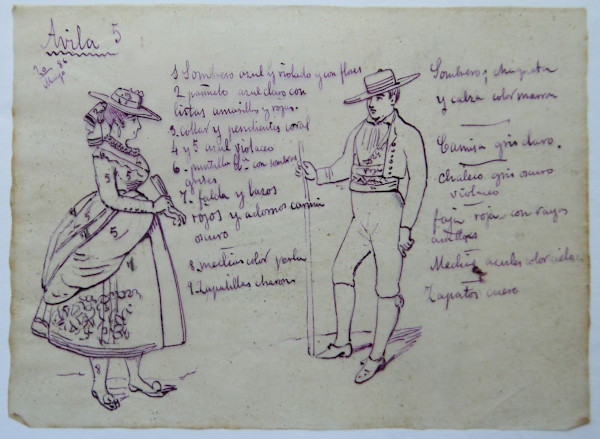 Avila 5
86
Mayo
1 Sombrero azul y violado y con flores
2 pañuelo azul claro con
listas amarillas y rojas.
3. collar y pendientes coral
4 y 5 azul violaceo
6. puntilla bca con sombra
grisea
7. falda y lazos
rojos y adornos carmin
oscuro
8. medias color perla
9. Zapatillas charol
Sombrero, chaqueta
y calza color marron
Camisa gris claro.
chaleco gris oscuro
violaceo
faja roja con rayos
amillos
Medias azules color
Zapatos cuero
4
5
5
5
7
9